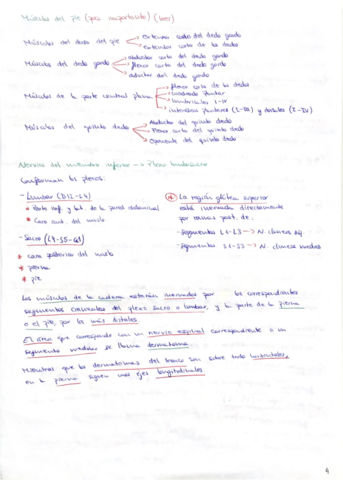 Músculos del pie (poco importante) (leer)
Músculos del dorso del pie → Extensor corto del dedo gordo
→ extensor corto de los dedos
Músculos del dedo gordo → abductor corto del dedo gordo
→ flexor corto del dedo gordo
→ aductor del dedo gordo
Músculos de la parte central plana → flexor corto de los dedos
→ cuadrado plantar
→ lumbricales I-IV
→ interóseos plantares (I-III) y dorsales (I-IV)
Músculos del quinto dedo → Abductor del quinto dedo
→ Flexor corto del quinto dedo
→ Oponente del quinto dedo
Nervios del miembro inferior → Plexo lumbosacro
Conforman los plexos:
- Lumbar (D12-L4)
* Parte inf. y lat. de la pared abdominal
* Cara ant. del muslo
- Sacro (L4-S5-Co1)
* cara posterior del muslo
* pierna
* pie
* La región glútea superior
está inervada directamente
por ramas post. de:
- Segmentos L1-L3 → N. cluneos sup.
- Segmentos S1-S3 → N. cluneos medios
Los músculos de la cadera estarán inervados por los correspondientes
segmentos craneales del plexo sacro o lumbar, y la parte de la pierna
o el pie, por los más distales.
El área que corresponde con un nervio espinal correspondiente a un
segmento medular se llama dermatoma.
Mientras que los dermatomas del tronco son sobre todo horizontales,
en la pierna siguen unos ejes longitudinales.